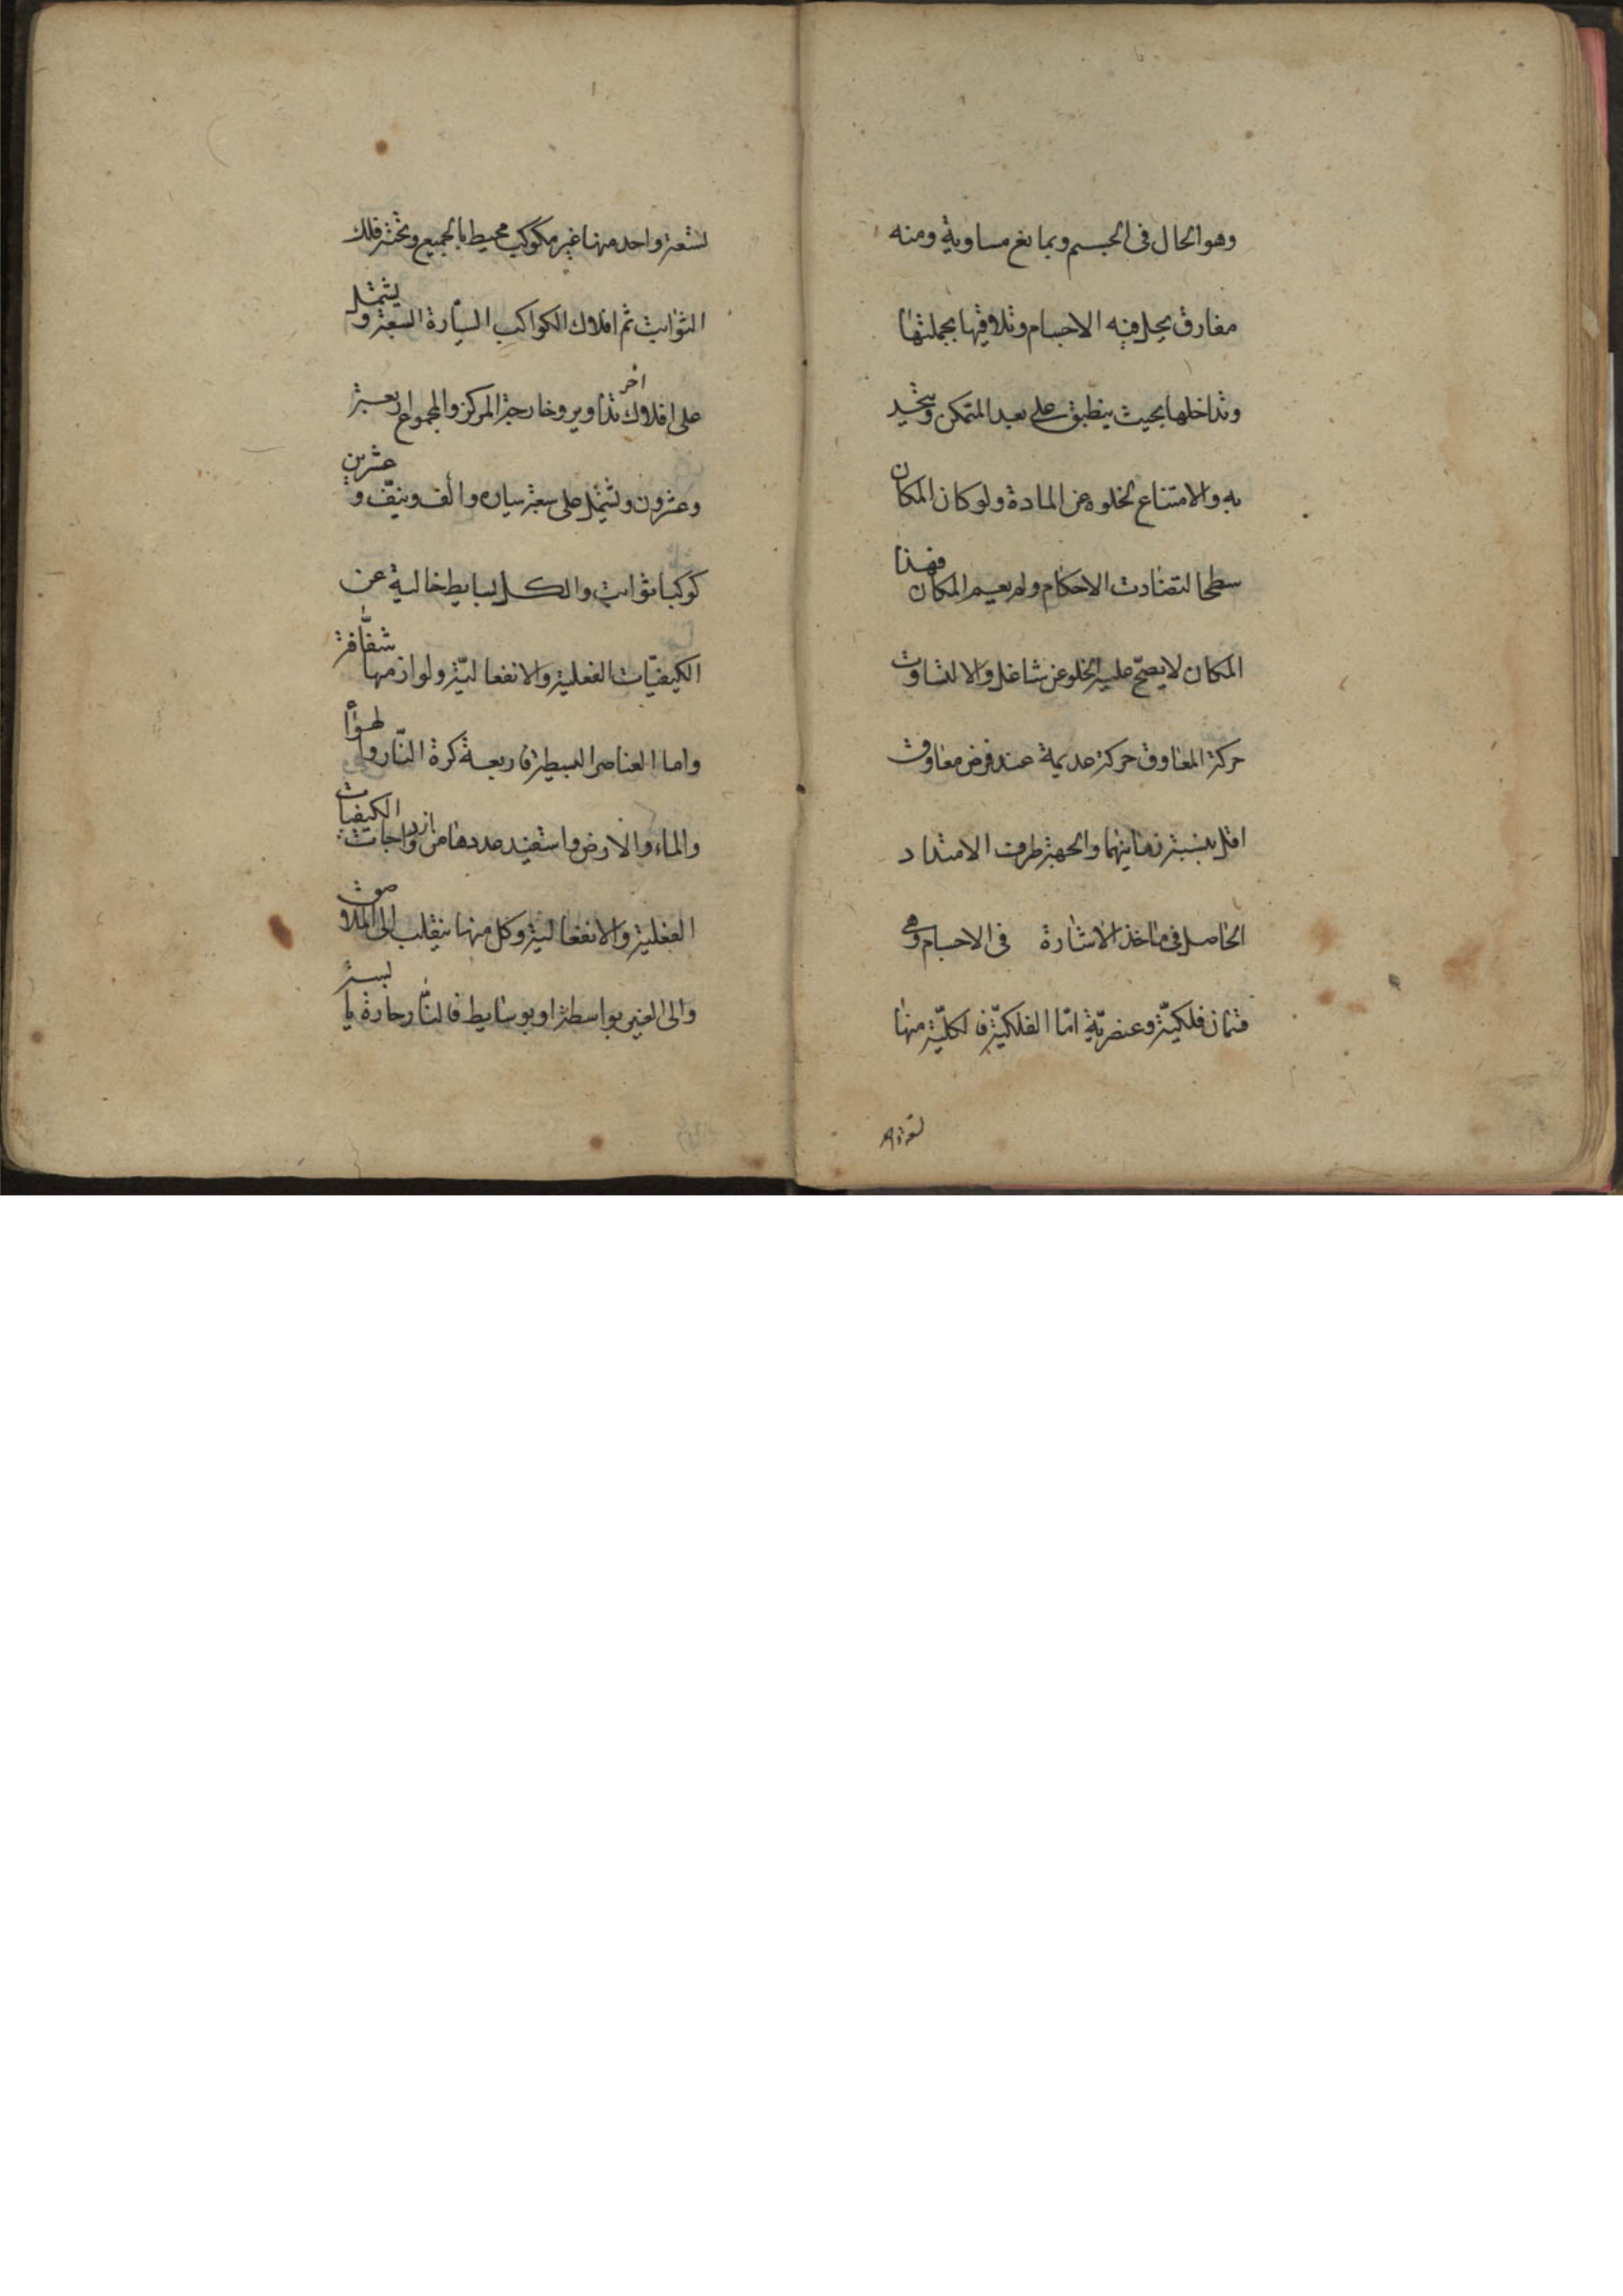 وهو الحال فى الجسم ويمانع مساويه ومنه
مفارق يحل فيه الاجسام وتلاقيها بجملتها
وتداخلها بحيث ينطبق على بعد المتمكن ويتحد
به والامتناع لخلوه عن المادة ولو كان المكان
سطحا لتضادت الاحكام ولم يعم المكان فهذا
المكان لا يصح عليه الخلو عن شاغل والا لتساوت
حركة المعاوق حركة عديمة عند فرض معاوق
اقل بنسبة زمانيهما والجهة طرف الامتداد
الحاصل فى ماخذ الاشارة فى الاجسام وهى
قسمان فلكية وعنصرية امّا الفلكيّة فالكليّة منها
لتسعة واحد منها غير مكوكب محيط بالجميع وتحته فلك
الثوابت ثم افلاك الكواكب السيّارة السبعة ويشتمل
على افلاك اخر تداوير وخارجة المركز والمجموع اربعة
وعشرون وتشتمل على سبعة سياره والف ونيّف وعشرين
كوكبا ثوابت والكل بسايط خالية عن
الكيفيّات الفعلية والانفعاليّة ولوازمها شفّافة
واما العناصر البسيطة فاربعة كرة النّار والهوأ
والماء والارض واستفيد عددها من ازدواجات الكيفيات
الفعلية والانفعالية وكل منها ينقلب الى الملاصق
والى الغير بواسطة او بوسايط فالنّار حارة يابسة